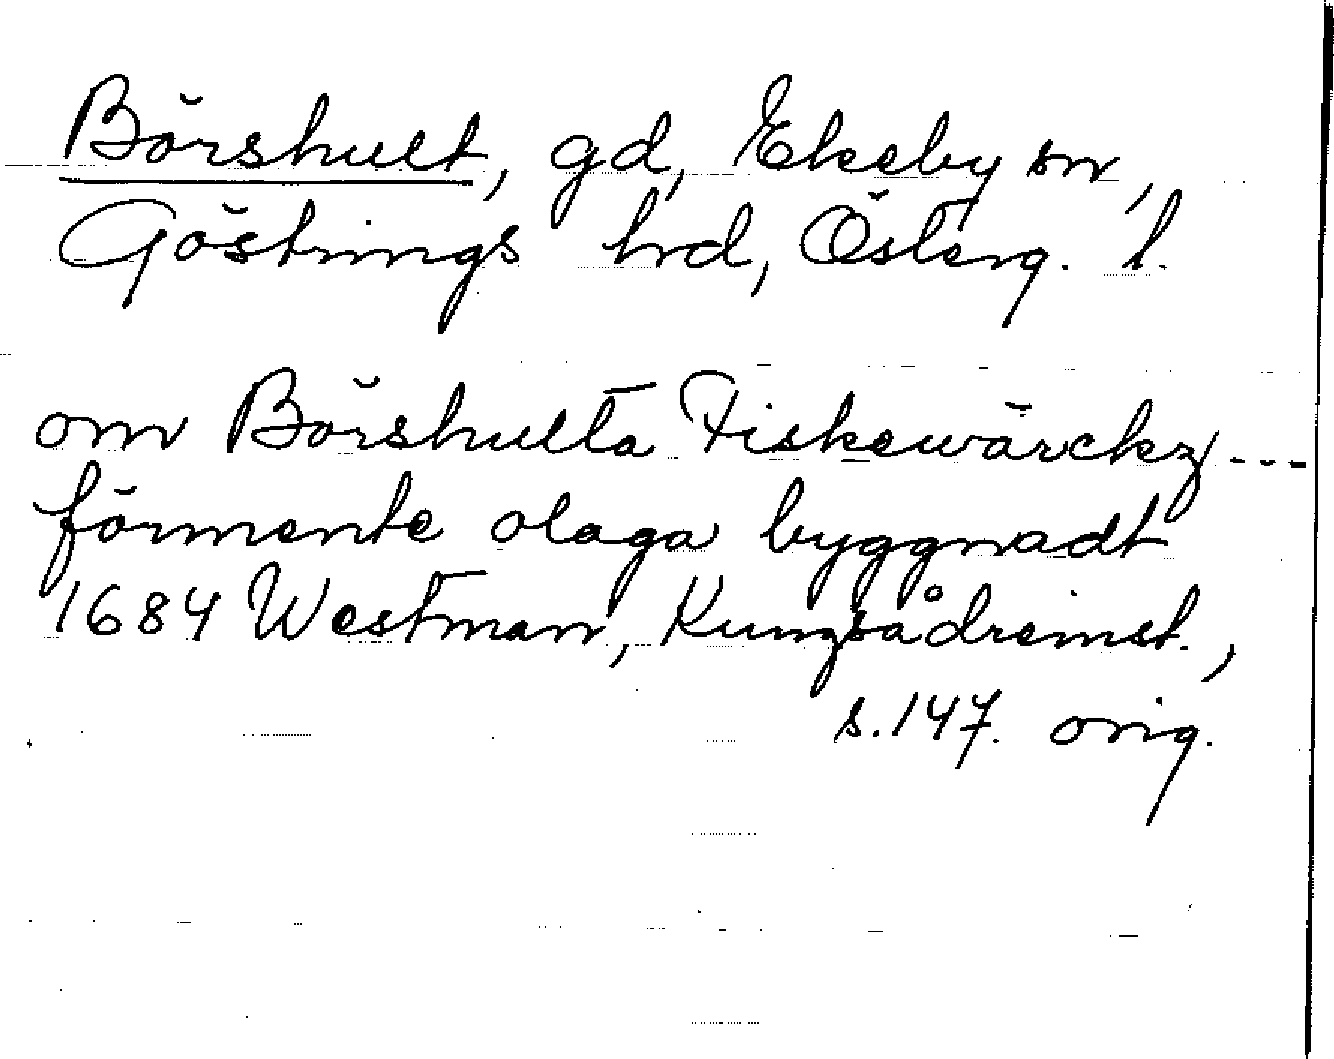 Börshult, gd, Ekeby sn,
Göstrings hrd, Österg. l.
om Börshulta Fiskewärckz ---
förmente olaga byggnadt
1684 Westman, Kungsådreinst.,
s.147. orig.